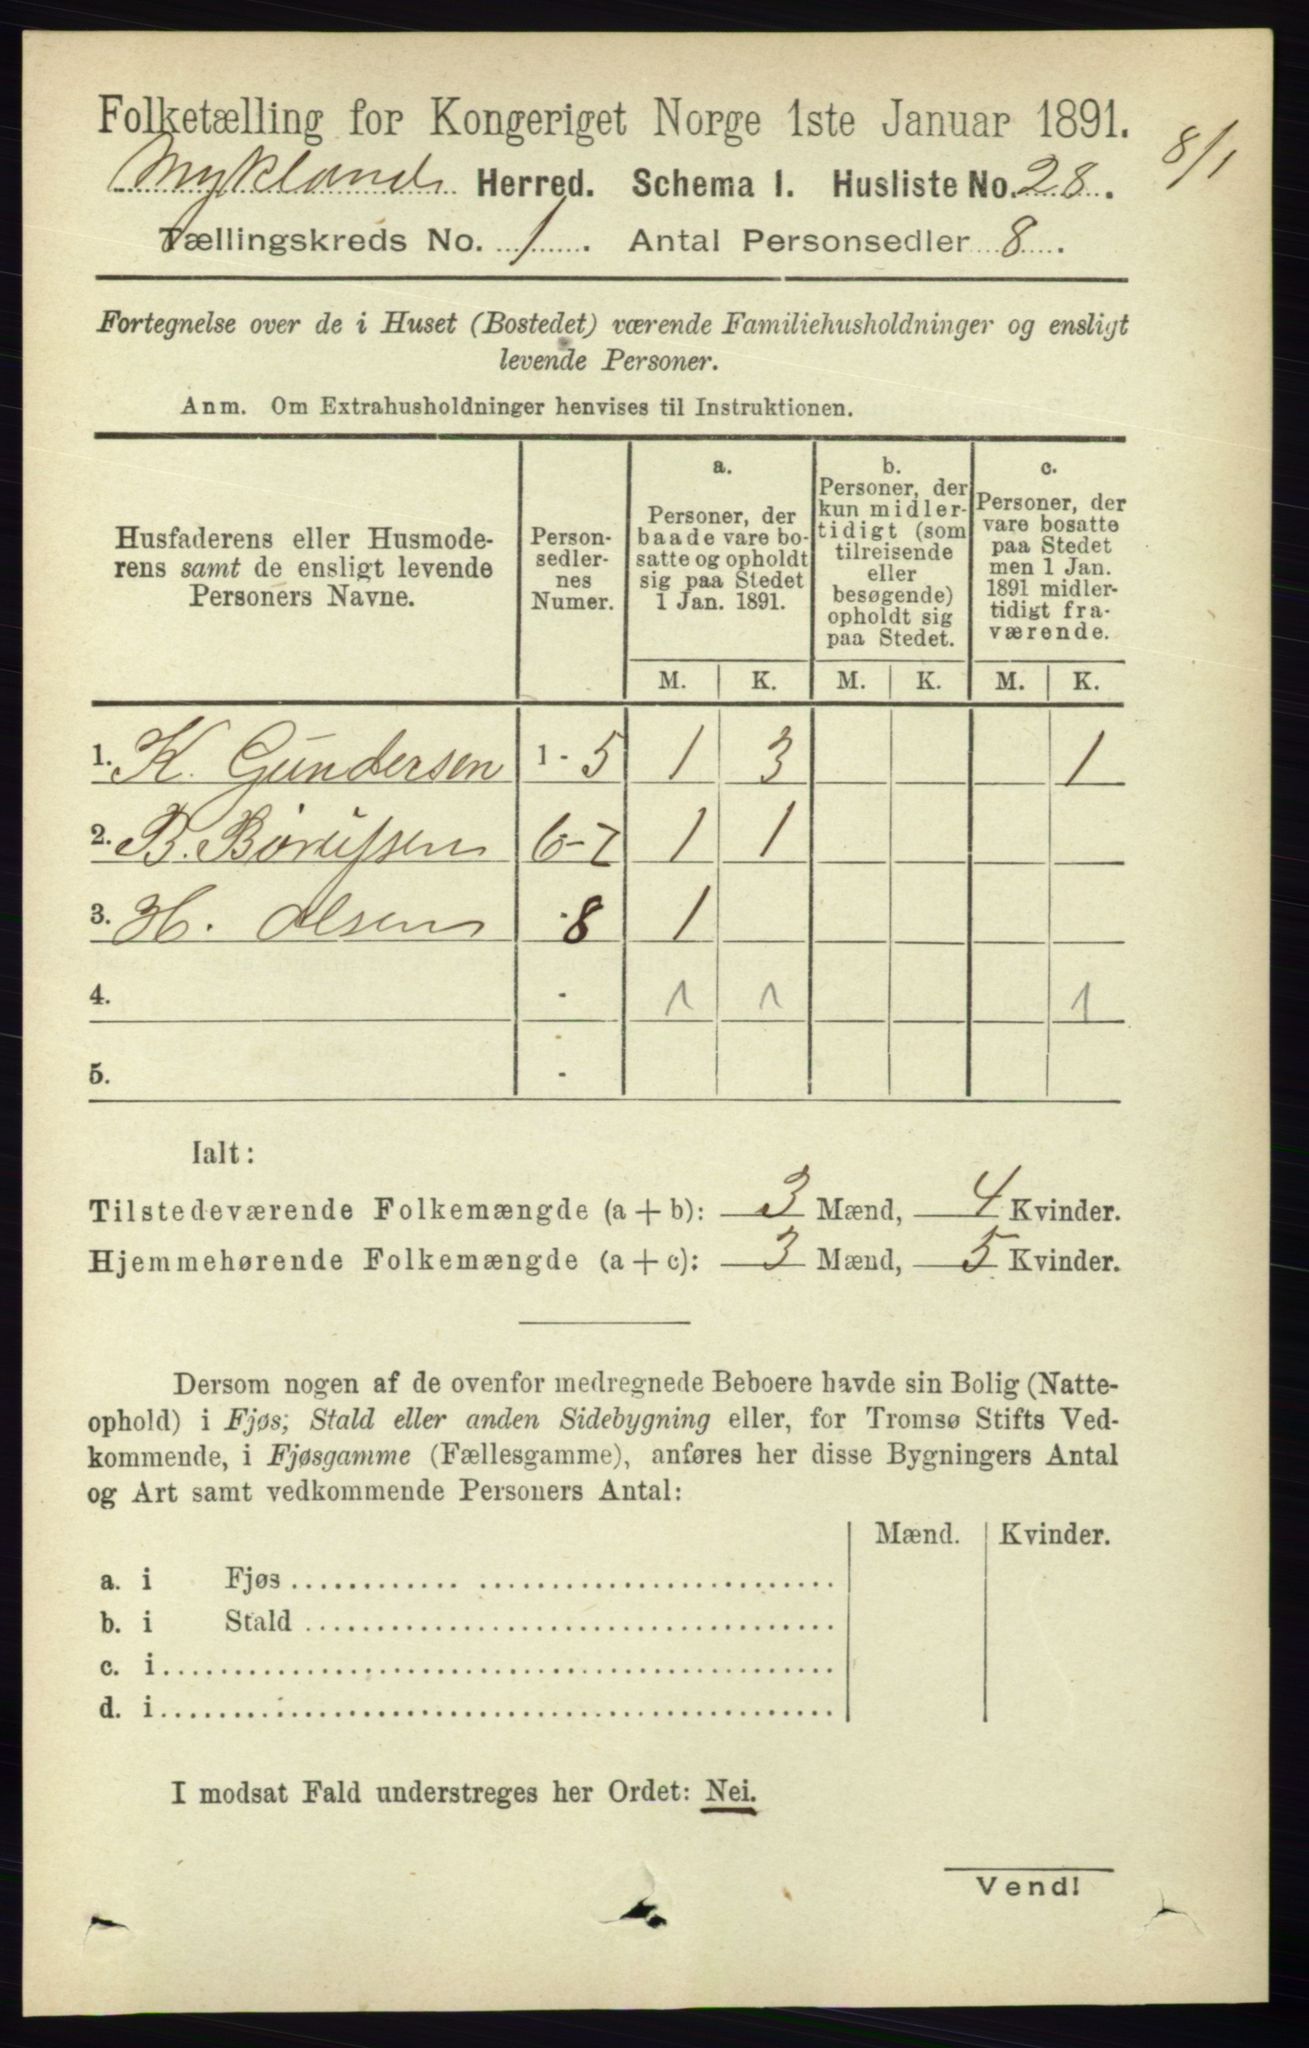 Folketælling for Kongeriget Norge 1ste Januar 1891.
8/1
Mykland Herred. Schema 1. Husliste No. 28.
Tællingskreds No. 1. Antal Personsedler 8.
Fortegnelse over de i Huset (Bostedet) værende Familiehusholdninger og ensligt
levende Personer.
Anm. Om Extrahusholdninger henvises til Instruktionen.
Husfaderens eller Husmode-
rens samt de ensligt levende
Personers Navne.
Person-
sedler-
nes
Numer.
a.
Personer, der
baade vare bo-
satte og opholdt
sig paa Stedet
1 Jan. 1891.
b.
Personer, der
kun midler-
tidigt (som
tilreisende
eller
besøgende)
opholdt sig
paa Stedet.
c.
Personer, der
vare bosatte
paa Stedet
men 1 Jan.
1891 midler-
tidigt fra-
værende.
M. K. M. K. M. K.
1. K. Gundersen 1 - 5 1 3 1
2. B. 6-7 1 1
3. H. Olsen - 8 1
4. - 1 1 1
5. -
Ialt:
Tilstedeværende Folkemængde (a + b): 3 Mænd, 4 Kvinder.
Hjemmehørende Folkemængde (a + c): 3 Mænd, 5 Kvinder.
Dersom nogen af de ovenfor medregnede Beboere havde sin Bolig (Natte-
ophold) i Fjøs, Stald eller anden Sidebygning eller, for Tromsø Stifts Ved-
kommende, i Fjøsgamme (Fællesgamme), anføres her disse Bygningers Antal
og Art samt vedkommende Personers Antal:
Mænd. Kvinder.
a. i Fjøs
b. i Stald
c. i
d. i
I modsat Fald understreges her Ordet: Nei.
Vend!